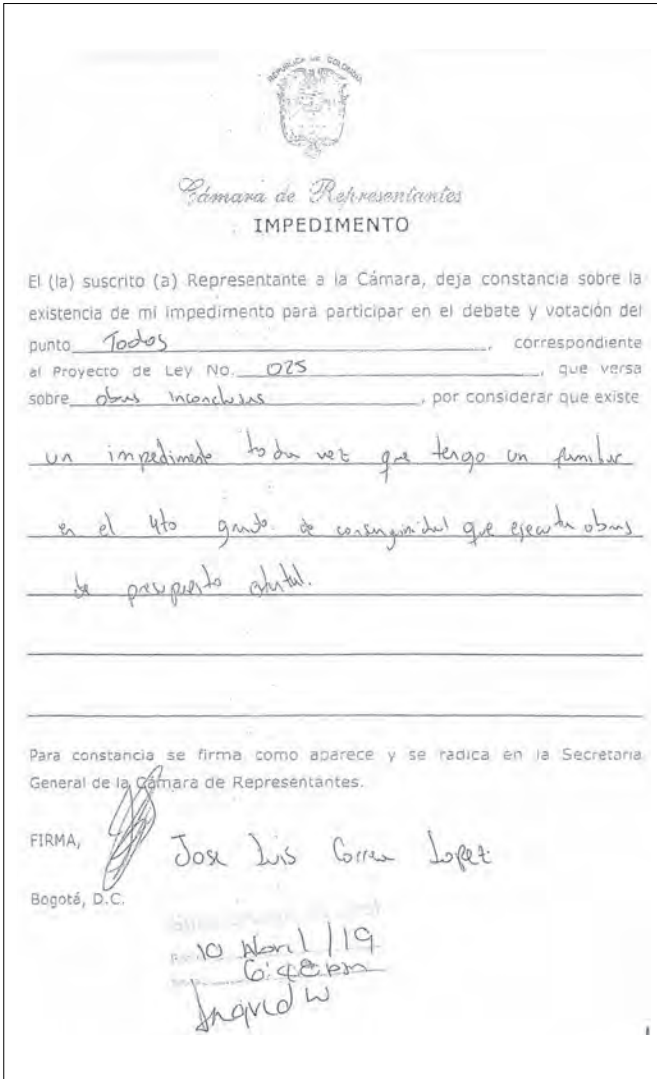 REPUBLICA DE COLOMBIA
Cámara de Representantes
IMPEDIMENTO
El (la) suscrito (a) Representante a la Cámara, deja constancia sobre la
existencia de mi impedimento para participar en el debate y votación del
punto Todos, correspondiente
al Proyecto de Ley No. 025, que versa
sobre obras inconclusas, por considerar que existe
un impedimento toda vez que tengo un familiar
en el 4to grado de consanguinidad que ejecuta obras
de presupuesto estatal.
Para constancia se firma como aparece y se radica en la Secretaria
General de la Cámara de Representantes.
FIRMA, Jose Luis Correa Lopez
Bogotá, D.C.
10 Abril / 19
6:48 pm
Ingrid W